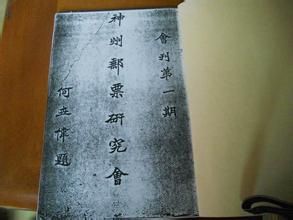 會刊第一期
神州郵票研究會
何世偉題